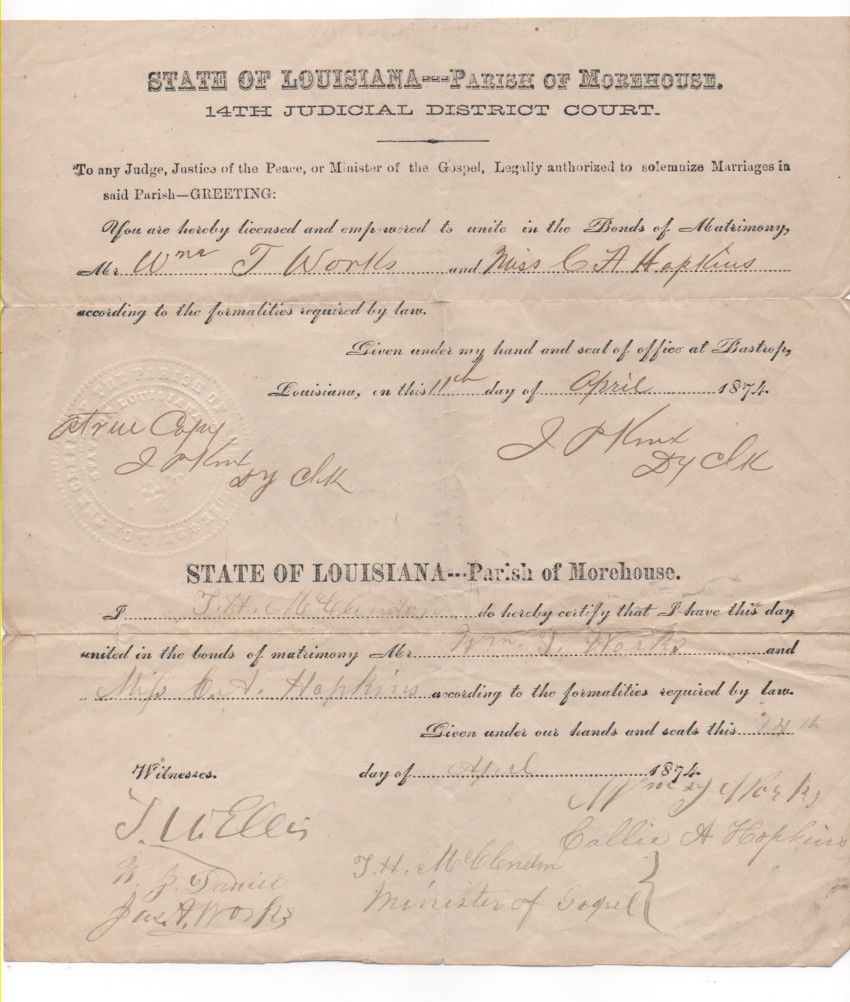 STATE OF LOUISIANA---PARISH OF MOREHOUSE.
14TH JUDICIAL DISTRICT COURT.
To any Judge, Justice of the Peace, or Minister of the Gospel, Legally authorized to solemnize Marriages in
said Parish—GREETING:
You are hereby licensed and empowered to unite in the Bonds of Matrimony,
Mr Wm T Works and Miss C A Hopkins
according to the formalities required by law.
Given under my hand and seal of office at Bastrop,
Louisiana, on this 11th day of April 1874.
A true Copy
J P Knox
Dy Clk
J P Knox
Dy Clk
STATE OF LOUISIANA---Parish of Morehouse.
I T. H. McClendon do hereby certify that I have this day
united in the bonds of matrimony Mr Wm. T. Works and
Miss C. A. Hopkins according to the formalities required by law.
Given under our hands and seals this 14th
Witnesses. day of April 1874.
Wm T Works
T. W. Ellis
Callie A Hopkins
T. H. McClendon
Daniel
Minister of Gospel
Jas. A. Works